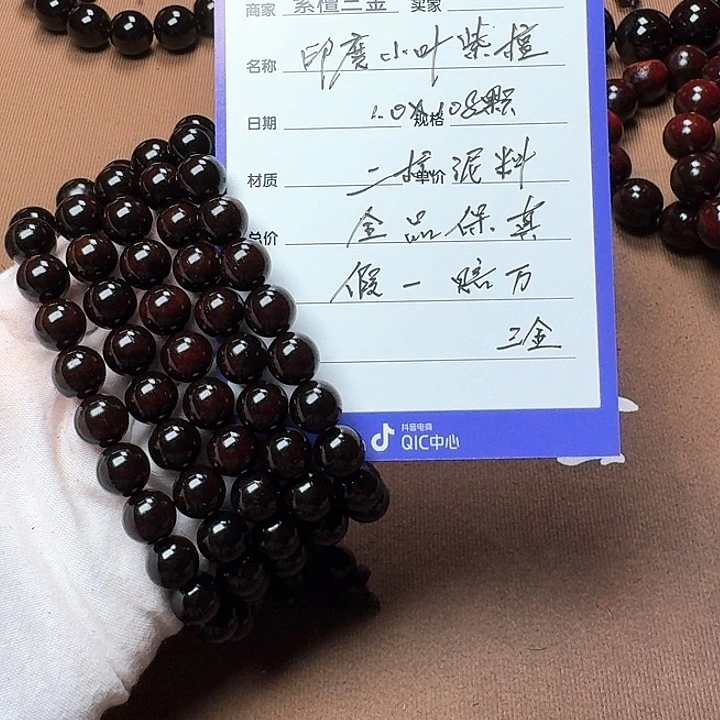 商家 紫檀三金 买家
名称 印度小叶紫檀
日期 1.0×108颗 规格
材质 二档泥料 单价
总价 全品保真
假一赔万
三金
抖音电商
QIC中心